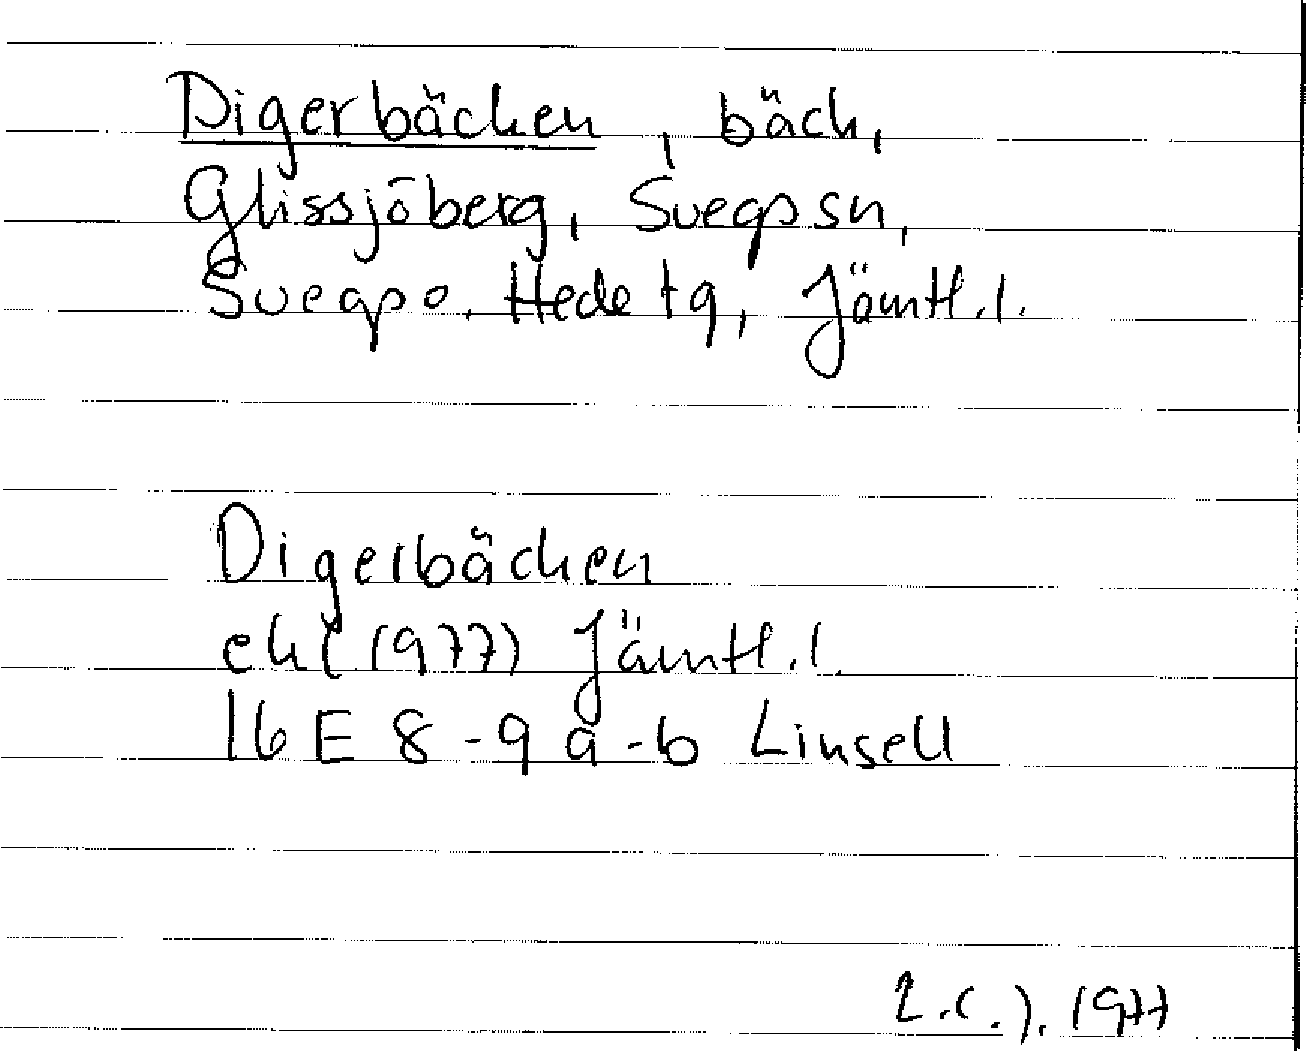 Digerbäcken, bäck,
Glissjöberg, Svegs sn,
Svegs o. Hede tg, Jämtl.l.
Digerbäcken
ek (1977) Jämtl.l.
16 E 8-9 a-b Linsell
1977